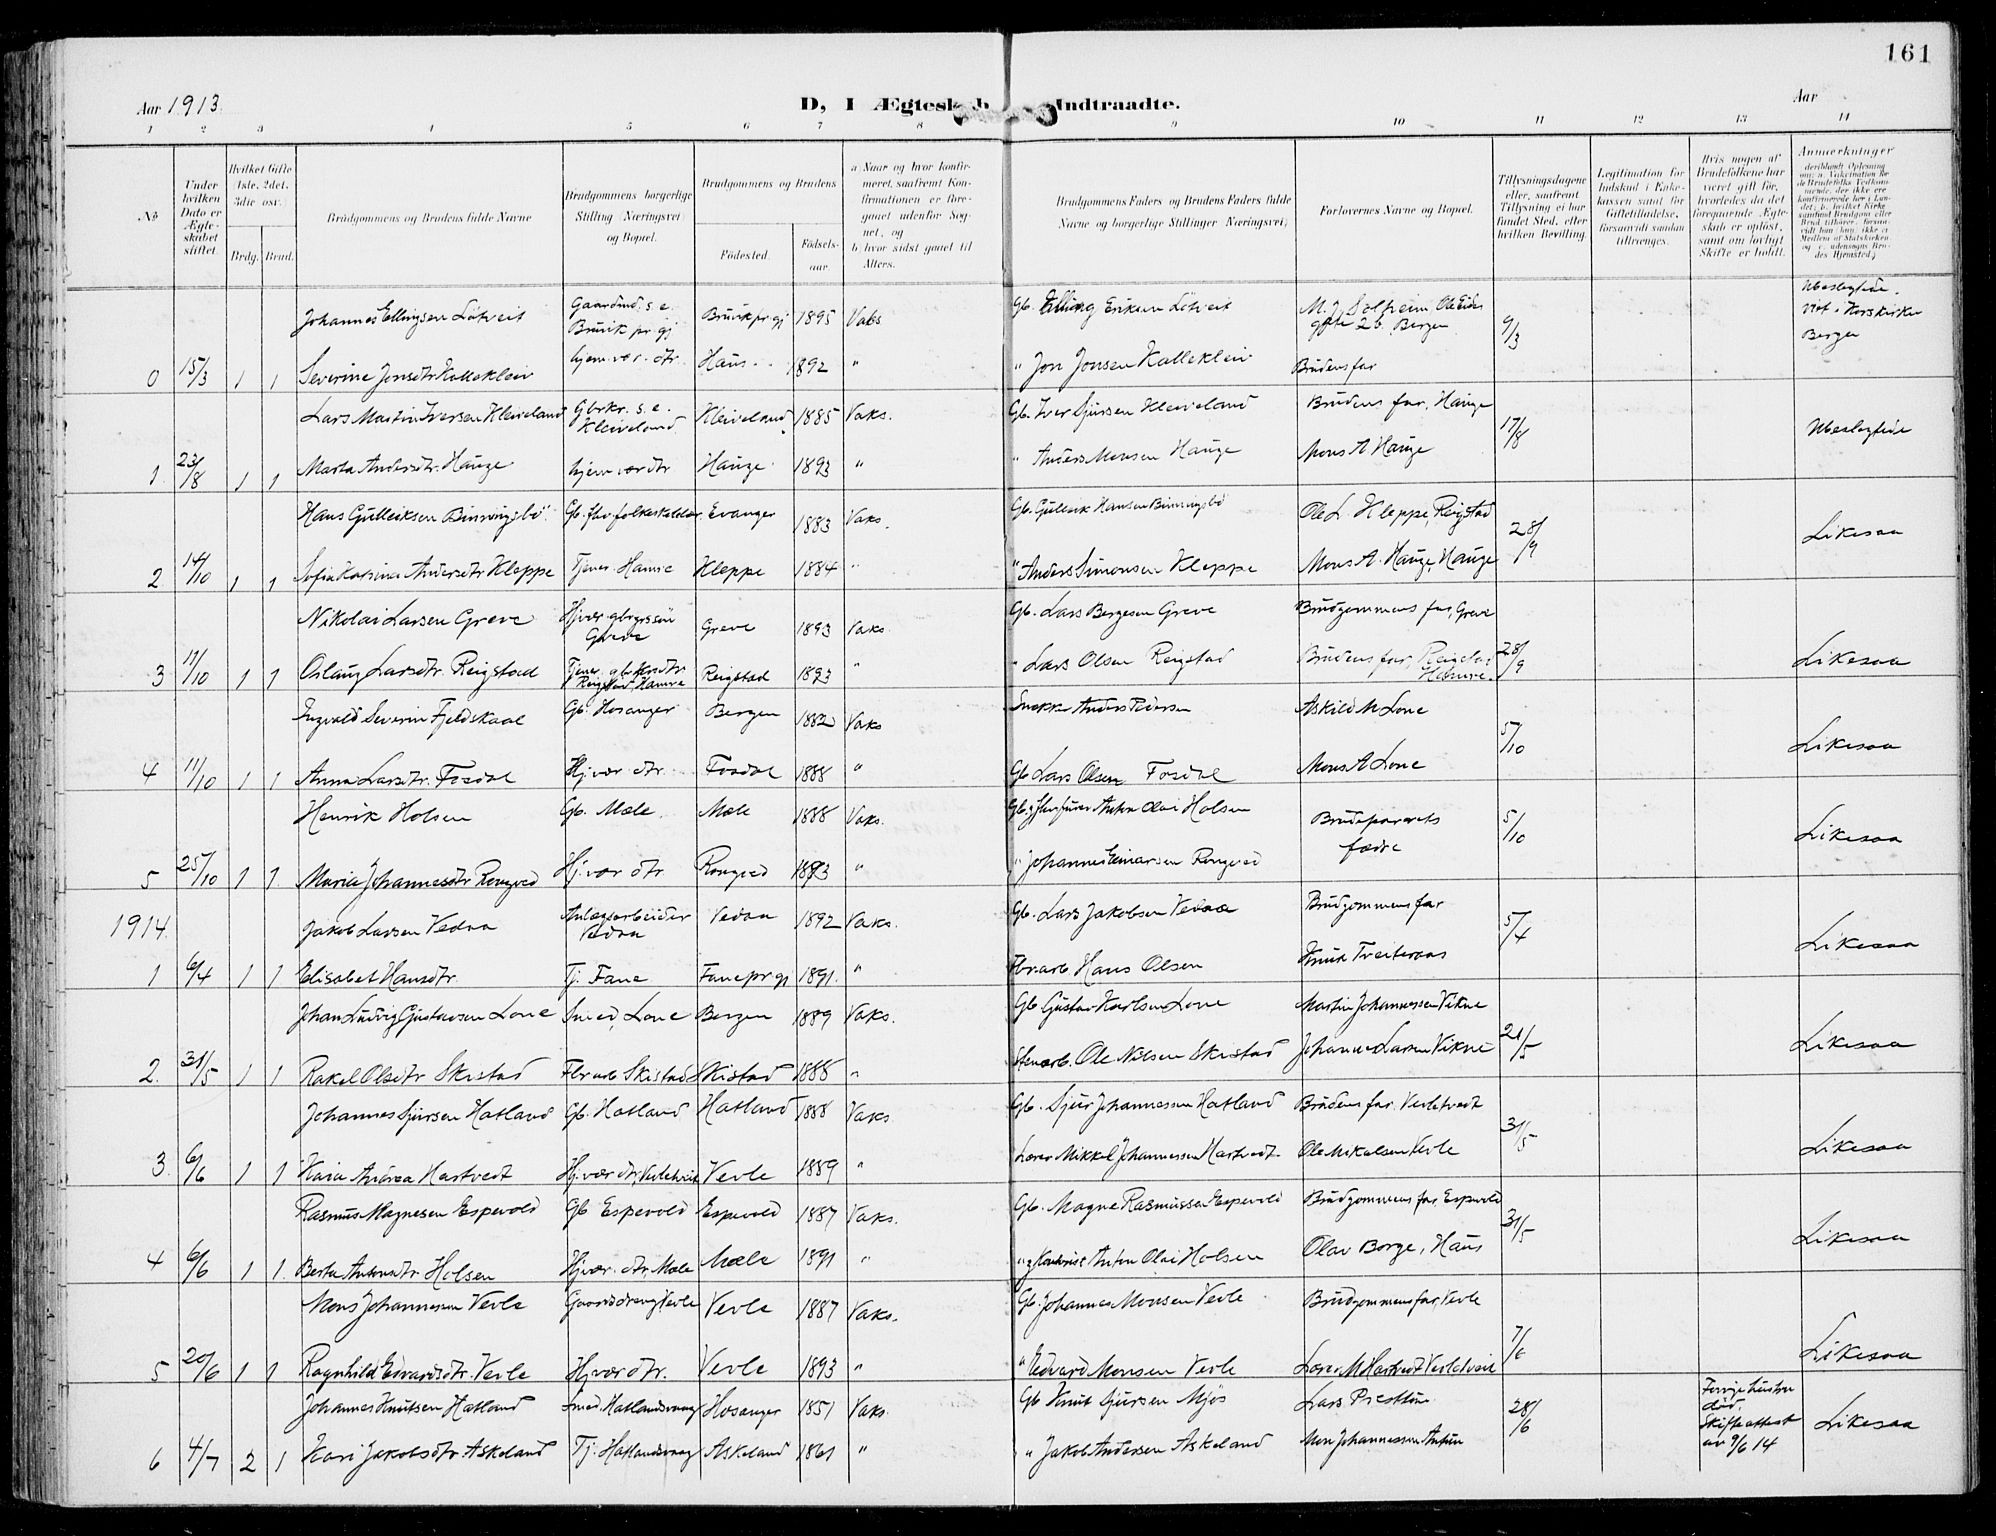 161
Aar 1913.
D, I Ægtesk b Indtraadte.
Aar
1 2 3 4 5 6 7 8 9 10 11 12 13 14
No
Under hvilken Dato er Ægteskabet stiftet.
Hvilket Gifte 1ste, 2det, 3die osv.
Brdg. Brud.
Brudgommens og Brudens fulde Navne
Brudgommens borgerlige Stilling (Næringsvei) og Bopæl.
Brudgommens og Brudens
Fødested. Fødselsaar.
a. Naar og hvor konfirmeret, saafremt Konfirmationen er foregaaet udenfor Sognet, og
b. hvor sidst gaaet til Alters.
Brudgommens Faders og Brudens Faders fulde Navne og borgerlige Stillinger (Næringsvei)
Forlovernes Navne og Bopæl.
Tillysningsdagene eller, saafremt Tillysning ei har fundet Sted, efter hvilken Bevilling.
Legitimation for Indskud i Enkekassen samt for Giftetilladelse, forsaavidt saadan tiltrænges.
Hvis nogen af Brudefolkene har været gift før, hvorledes da det foregaaende Ægteskab er opløst, samt om lovligt Skifte er holdt.
Anmærkninger
Johannes Ellingsen Lötveit Gaardmd. s. e. Bruvik pr.gj Bruvik pr gj 1895 Vaks Gb. Elling Eriksen Lötveit M. J. Solheim, Ole Eides gate 26, Bergen 9/3 Ubeslegtede. Viet i Korskirken Bergen
0 15/3 1 1 Severine Jonsdtr Kallekleiv hjem. vær. dtr. Haus 1892 " " Jon Jonsen Kallekleiv Brudens far
Lars Martin Iversen Kleiveland Gbrkr. s. e. Kleiveland Kleiveland 1885 Vaks. Gb. Iver Sjursen Kleiveland Brudens far, Hauge 17/8 Ubeslegtede
1. 23/8 1 1 Marta Andersdtr. Hauge hjem vær dtr Hauge 1893 " " Anders Monsen Hauge Mons A Hauge
Hans Gulleiksen Binningsbö Gb. Evanger 1883 Vaks. Gb. Gulleik Hansen Binningsbö Ole L. Kleppe, Reigstad 28/9 Likesaa
2 14/10 1 1 Sofie Katrine Andersdtr Kleppe Tjener. Hamre Kleppe 1884 " " Anders Simonsen Kleppe Mons A. Hauge, Hauge
Nikolai Larsen Greve Hjvær gbrgssön Greve Greve 1893 Vaks. Gb. Lars Bergesen Greve Brudgommens far, Greve
3 11/10 1 1 Oslaug Larsdtr. Reigstad Reigstad, Hamre Reigstad 1893 " " Lars Olsen Reigstad Brudens far, Reigstad Hamre. 28/9 Likesaa
Ingvald Severin Fjeldskaal Gb. Hosanger Bergen 1882 Vaks Snekker Anders Pedersen Askild M Lone 5/10 Likesaa
4 11/10 1 1 Anna Larsdtr. Fosdal Hj.vær. dtr. Fosdal 1888 " Gb Lars Olsen Fosdal Mons A Lone
Henrik Holsen Gb. Mæle. Mæle 1888 Vaks. Anton Olai Holsen Brudeparrets fædre 5/10 Likesaa
5 25/10 1 1 Maria Johannesdtr Rongved Hj. vær dtr Rongved 1893 " " Johannes Einarsen Rongved
1914.
Jakob Larsen Vedaa Anlægsarbeider Vedaa Vedaa 1892 Vaks. Gb. Lars Jakobsen Vedaa Brudgommens far 5/4 Likesaa
1 6/4 1 1 Elisabet Hansdtr. Tj. Fane Fane pr gj 1891. " Fbr.arb. Hans Olsen Knut Treiteraas
Johan Ludvig Gustavsen Lone Smed, Lone Bergen 1889 Vaks. Gb Gustav Karlsen Lone Martin Johannessen Vikne 21/5 Likesaa
2. 31/5 1 1 Rakel Olsdtr Skistad Fbr arb Skistad Skistad 1888 " Stenarb. Ole Nilsen Skistad Johannes Larsen Vikne
Johannes Sjursen Hatland Gb. Hatland Hatland 1888 Vaks Gb. Sjur Johannessen Hatland Brudens far, Vevletvedt 31/5 Likesaa
3. 6/6 1 1 Kaia Andrea Hartvedt Hj. vær dtr, Vevletveit Vevle 1889 " Lærer Mikkel Johannessen Hartvedt Ole Mikalsen Vevle
Rasmus Magnesen Espevold Gb Espevold Espevold 1887 Vaks. Gb. Magne Rasmussen Espevold Brudgommens far, Espevold 31/5 Likesaa
4 6/6 1 1. Berta Antonsdtr Holsen Hjvær. dtr. Mæle Mæle 1891 " Anton Olai Holsen Olav Borge, Haus
Mons Johannessen Vevle Gaardsdreng Vevle Vevle 1887 Vaks. Gb. Johannes Monsen Vevle Brudgommens far, Vevle
5 20/6 1 1 Ragnhild Edvardsdtr. Vevle Hj vær dtr. Vevle 1893 " " Edvard Monsen Vevle Lærer M Hartvedt Vevletveit 7/6 Likesaa
Johannes Knutsen Hatland Smed. Hatlandsvaag Hosanger 1851 Vaks. Gb Knut Sjursen Mjøs Lars Presttun 28/6 Forrige hustru död. Skifteattest av 9/6 14 Likesaa
6 4/7 2 1 Kari Jakobsdtr. Askeland Tj. Hatlandsvaag Askeland 1861 " " Jakob Andersen Askeland Mons Johannessen